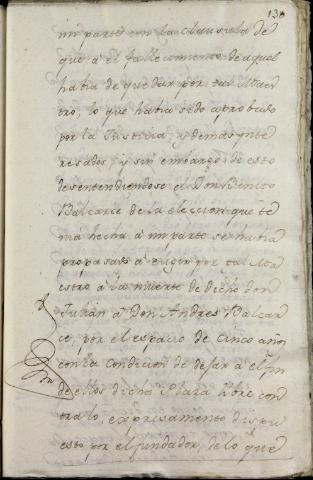 130
mi parte con la clausula de
que à el fallecimiento de aquel
habia de quedar por tal Maes
tro, lo que habia sido aprobado
por la Justicia, y demas ynte
resados, y sin embargo de esto
desentendiendose el Dn. Benito
Balcarce de la eleccion que te
nia hecha à mi parte se habia
propasado à elegir por tal Ma
estro à la muerte de dicho Don
Julián à Don Andres Balcar
ce, por el espacio de cinco años
con la condicion de dejar à el fin
de ellos dicha Plaza libre con
tra lo expresamente dispu
esto por el fundador, de lo que